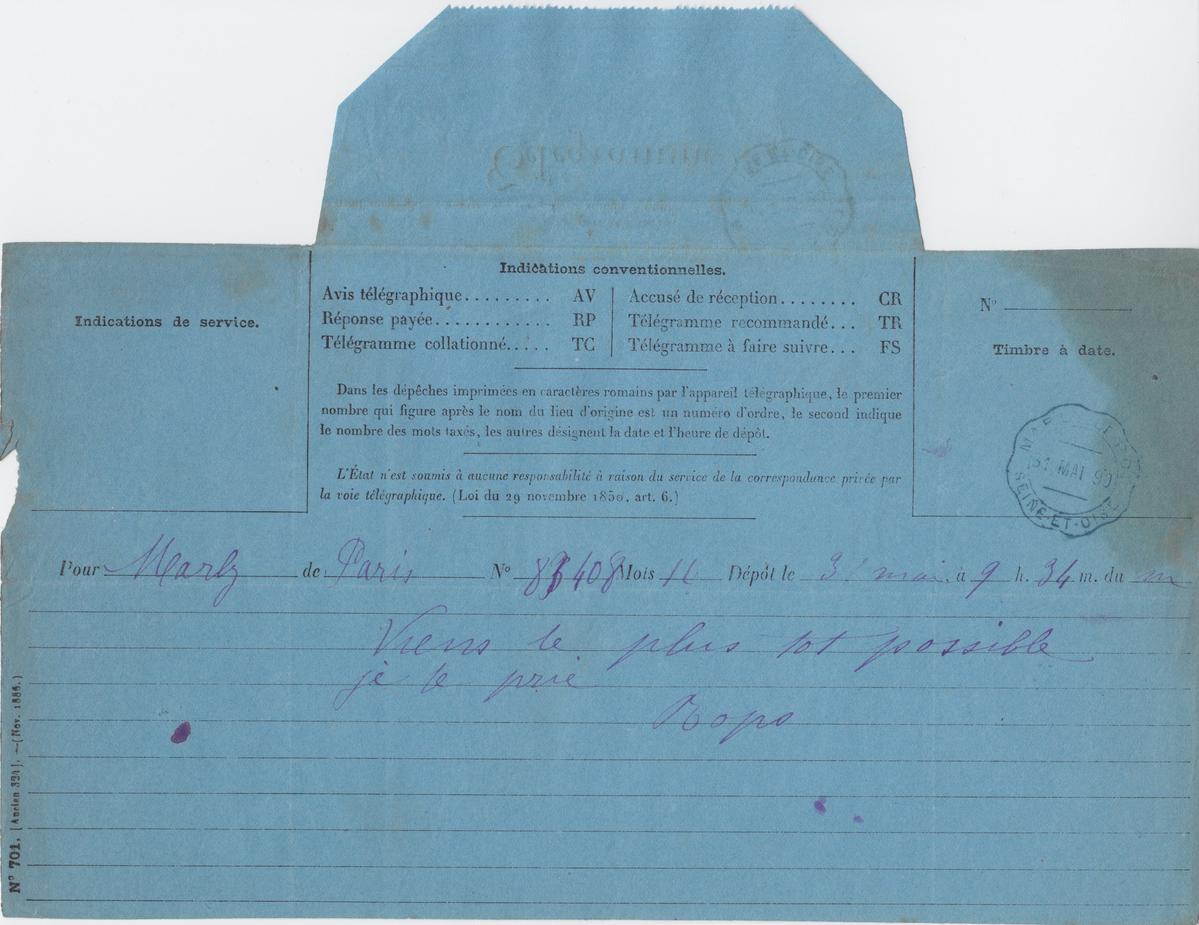 Télégramme
Indications conventionnelles.
Avis télégraphique......... AV
Réponse payée............ RP
Télégramme collationné..... TC
Accusé de réception........ CR
Télégramme recommandé... TR
Télégramme à faire suivre... FS
Dans les dépêches imprimées en caractères romains par l'appareil télégraphique, le premier
nombre qui figure après le nom du lieu d'origine est un numéro d'ordre, le second indique
le nombre des mots taxés, les autres désignent la date et l'heure de dépôt.
L'État n'est soumis à aucune responsabilité à raison du service de la correspondance privée par
la voie télégraphique. (Loi du 29 novembre 1850, art. 6.)
Indications de service.
N°
Timbre à date.
31 MAI 90
SEINE-ET-OISE
Pour Marly de Paris N° Mots Dépôt le 31 mai à 9 h. 34 m. du m
Viens le plus tot possible
je te prie
Rops
N° 701. (Ancien 324). — (Nov. 1886.)